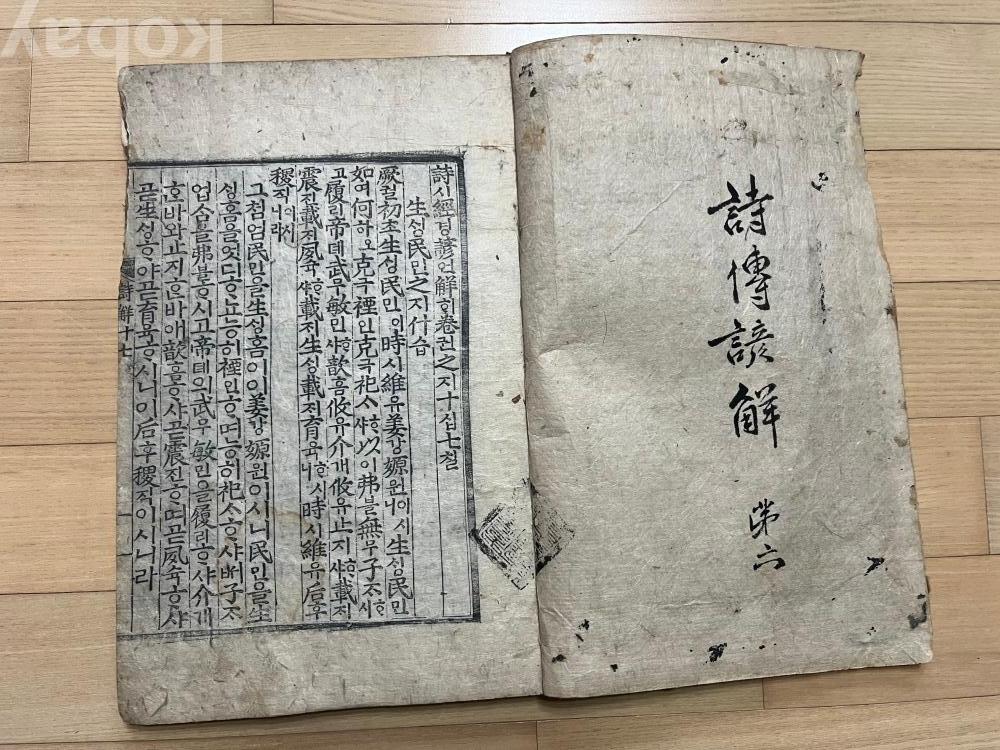 詩傳諺解
第六
詩시經경諺언解ᄒᆡ卷권之지十십七칠
生ᄉᆡᆼ民민之지什습
厥궐初초生ᄉᆡᆼ民민이時시維유姜강嫄원이시니生ᄉᆡᆼ民민
如여何하오克극禋인克극祀ᄉᆞᄒᆞ샤以이弗블無무子ᄌᆞᄒᆞ시
고履리帝뎨武무敏민ᄒᆞ샤歆흠攸유介개攸유止지ᄒᆞ샤載ᄌᆡ
震진載ᄌᆡ夙슉ᄒᆞ샤載ᄌᆡ生ᄉᆡᆼ載ᄌᆡ育육ᄒᆞ시니時시維유后후
稷직이시니라
그처엄民민을生ᄉᆡᆼ홈이姜강嫄원이시니民민을生
ᄉᆡᆼ홈을엇디ᄒᆞ뇨능히禋인ᄒᆞ며능히祀ᄉᆞᄒᆞ샤ᄡᅥ子ᄌᆞ
업슴을弗블ᄒᆞ시고帝뎨의武무敏민을履리ᄒᆞ샤介개
ᄒᆞᆫ바와止지ᄒᆞᆫ바애歆흠ᄒᆞ샤곧震진ᄒᆞ며곧夙슉ᄒᆞ샤
곧生ᄉᆡᆼᄒᆞ야곧育육ᄒᆞ시니이后후稷직이시니라
詩解十七
kobay